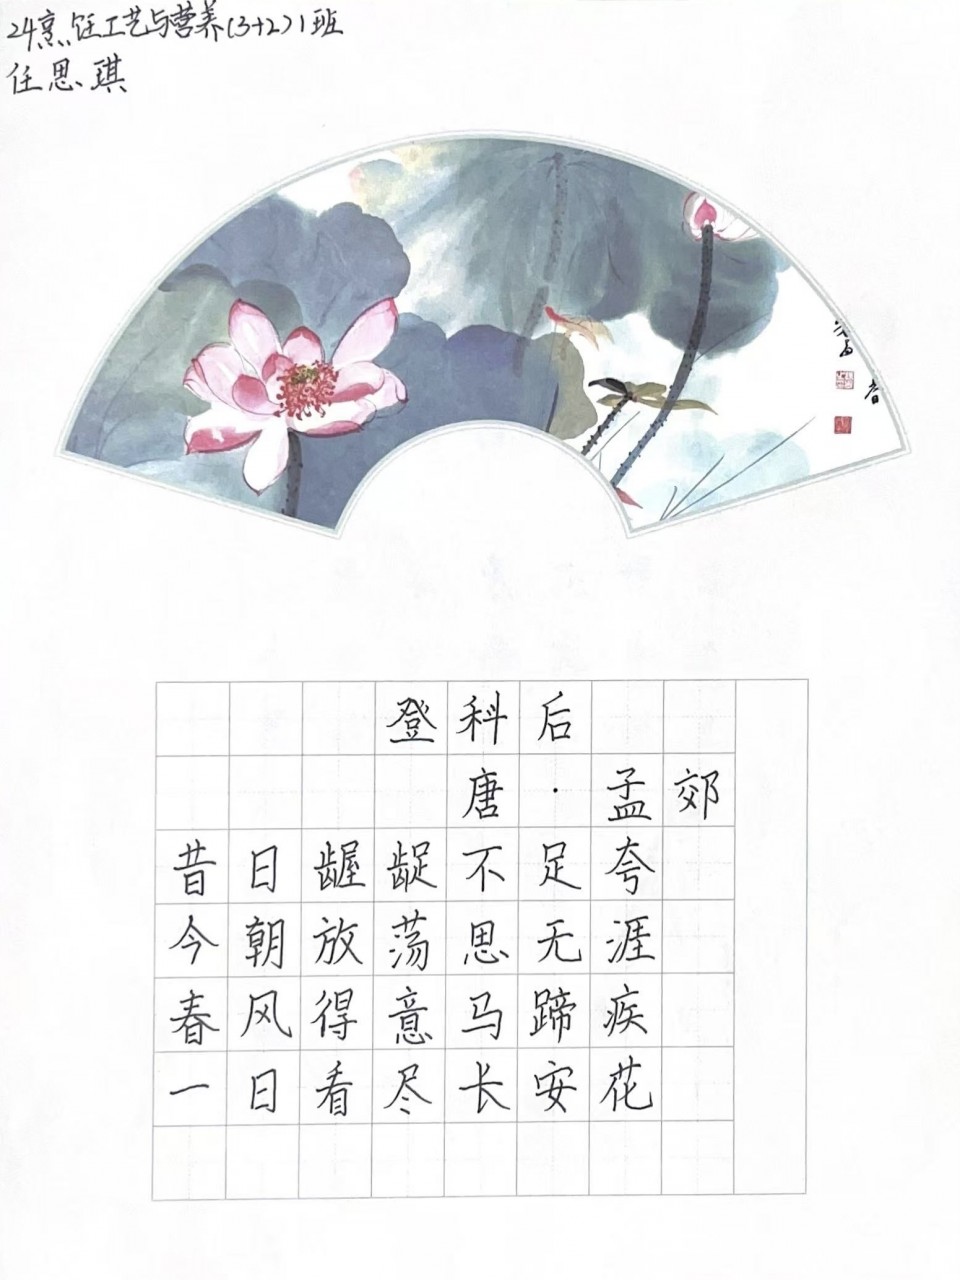 24烹饪工艺与营养(3+2)1班
任思琪
登科后
唐·孟郊
昔日龌龊不足夸
今朝放荡思无涯
春风得意马蹄疾
一日看尽长安花